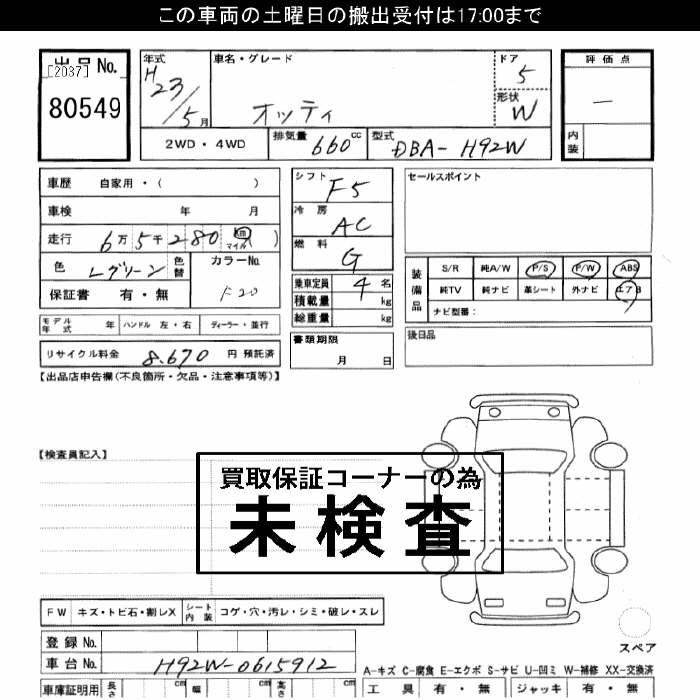 この車両の土曜日の搬出受付は17:00まで
出品No. [2037] 80549
年式 H23/5月
車名・グレード オッティ
ドア 5
形状 W
評価点 —
内装
2WD・4WD
排気量 660cc
型式 DBA-H92W
車歴 自家用・( )
車検 年 月
走行 6万5千280 km マイル( )
色 Lグリーン 色替
カラーNo. F20
保証書 有・無
シフト F5
冷房 AC
燃料 G
乗車定員 4名
積載量 kg
総重量 kg
セールスポイント
装備品 S/R 純A/W P/S P/W ABS
純TV 純ナビ 革シート 外ナビ エアB
ナビ型番:
モデル年式 年 ハンドル 左・右 ディーラー・並行
リサイクル料金 8,670 円 預託済
書類期限 月 日
後日品
【出品店申告欄(不良箇所・欠品・注意事項等)】
【検査員記入】
買取保証コーナーの為
未検査
FW キズ・トビ石・割レX シート内装 コゲ・穴・汚レ・シミ・破レ・スレ
登録No.
車台No. H92W-0615912
スペア
A-キズ C-腐食 E-エクボ S-サビ U-凹ミ W-補修 XX-交換済
車庫証明用 長さ cm 幅 cm 高さ cm
工具 有・無 ジャッキ 有・無